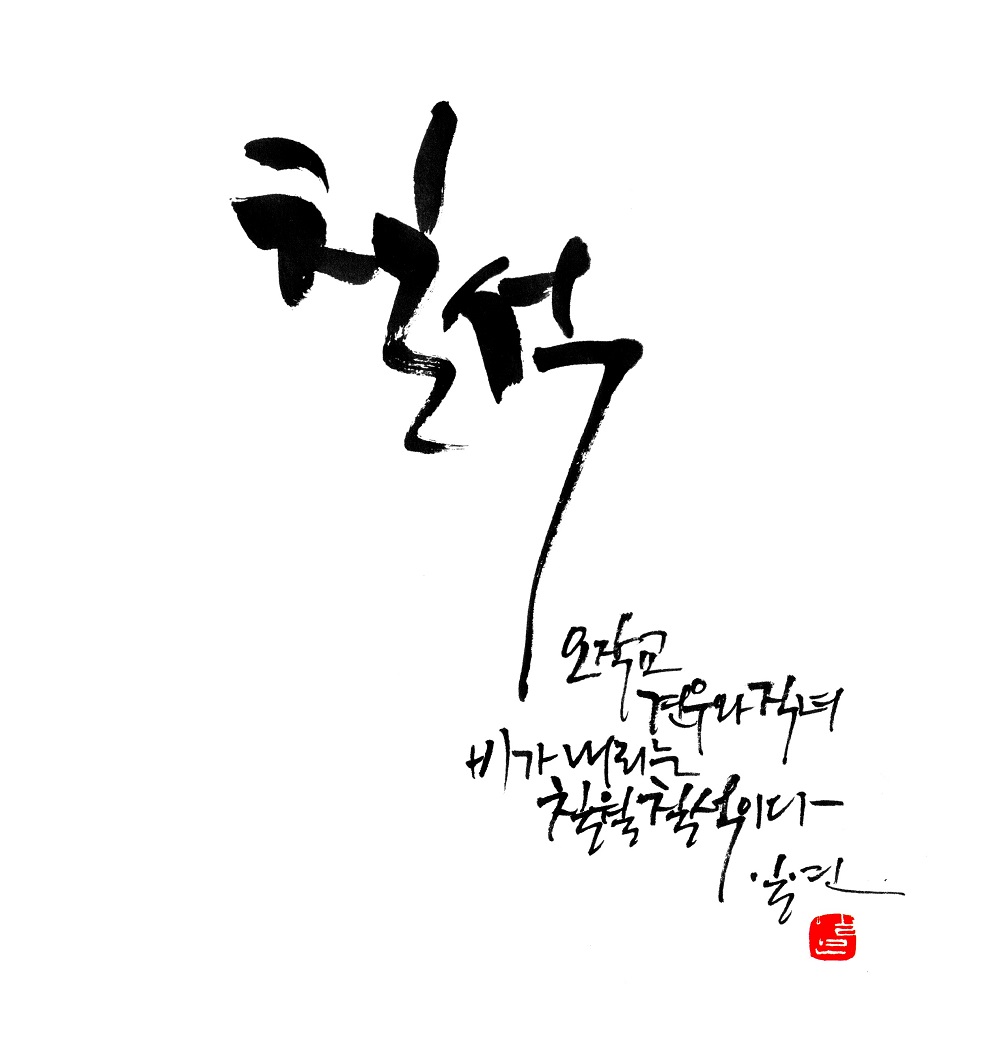 칠석
오작교
견우와 직녀
비가 내리는
칠월칠석이다